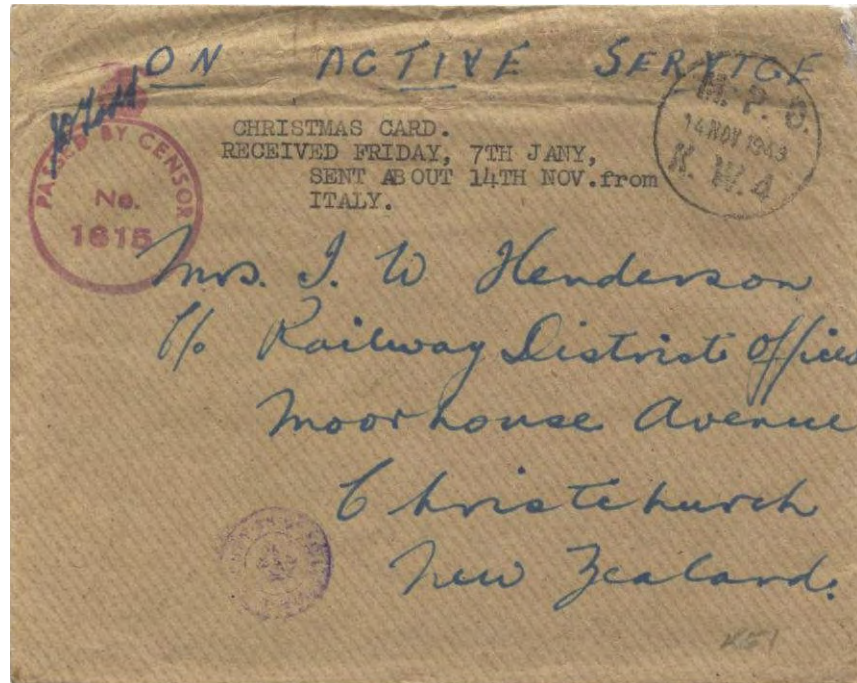 ON ACTIVE SERVICE
PASSED BY CENSOR
No.
1615
M. P. O.
14 NOV 1943
K. W. 4
CHRISTMAS CARD.
RECEIVED FRIDAY, 7TH JANY,
SENT ABOUT 14TH NOV.from
ITALY.
Mrs. I. W Henderson
C/o Railway District Office
Moorhouse Avenue
Christchurch
New Zealand.